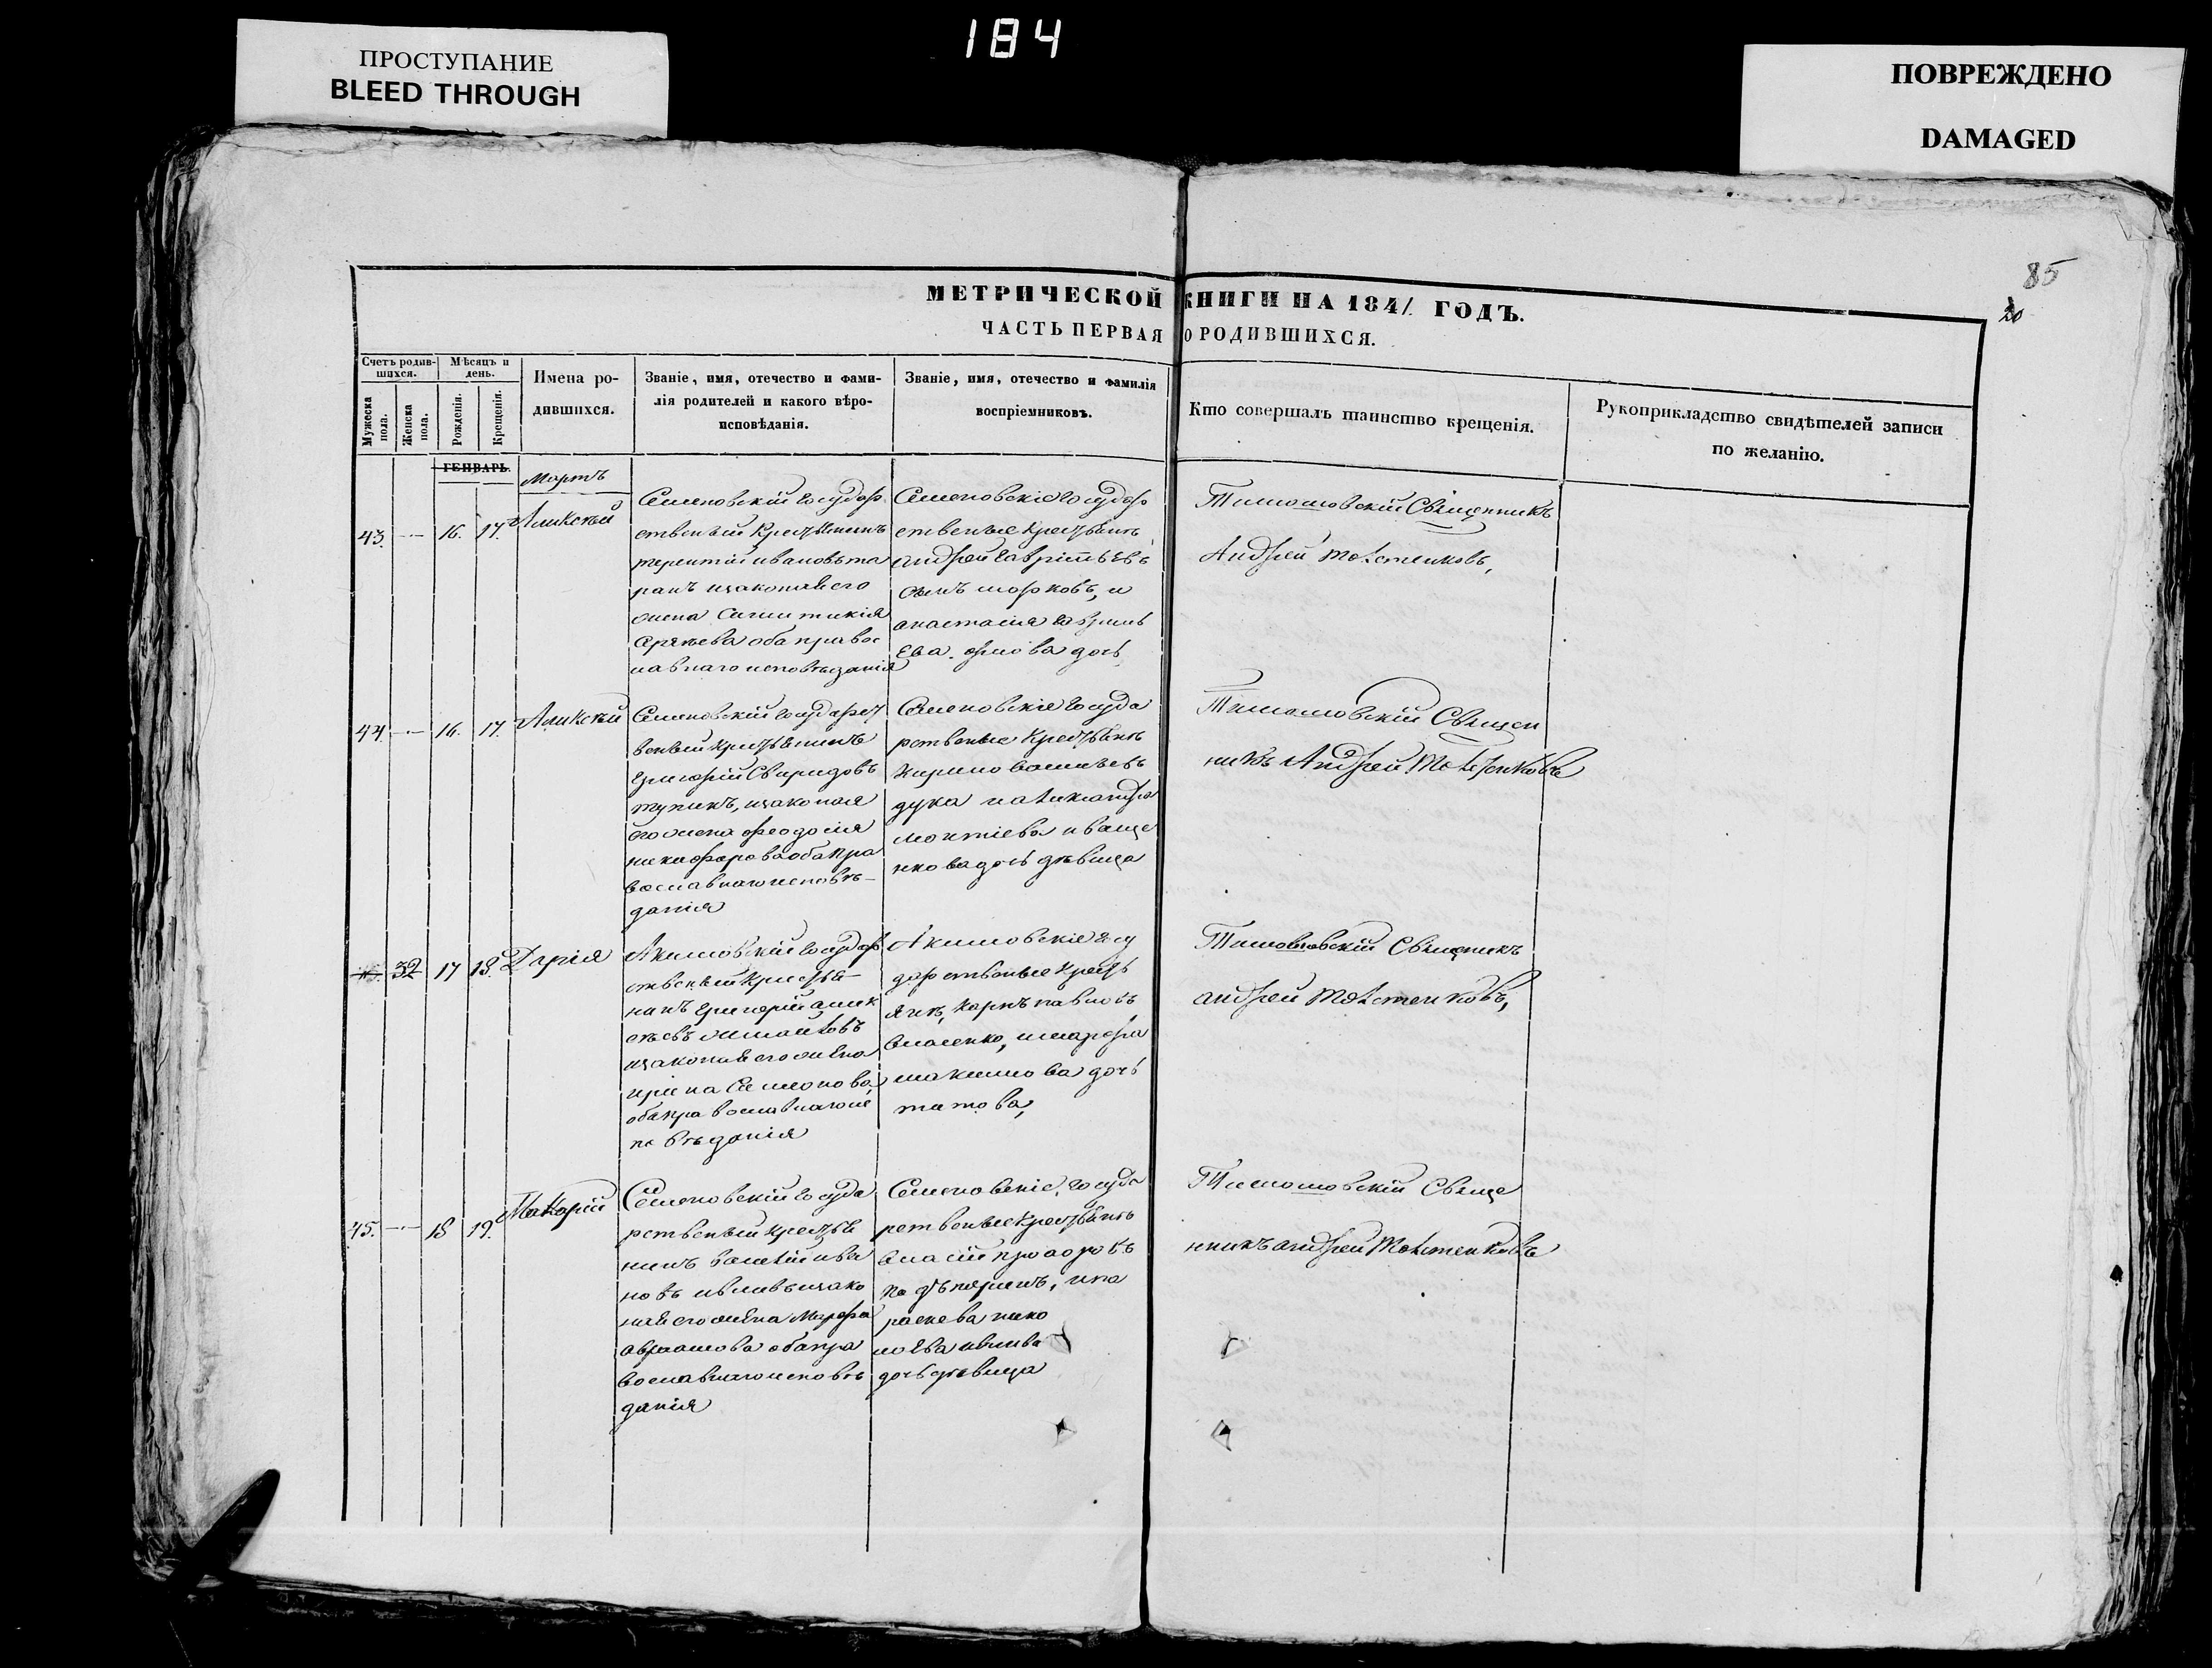 184
ПРОСТУПАНИЕ
BLEED THROUGH
ПОВРЕЖДЕНО
DAMAGED
85
20
МЕТРИЧЕСКОЙ КНИГИ НА 1841 ГОДЪ.
ЧАСТЬ ПЕРВАЯ О РОДИВШИХСЯ.
Счетъ родив-
шихся.
Мужеска
пола.
Женска
пола.
Мѣсяцъ и
день.
Рожденія.
Крещенія.
Имена ро-
дившихся.
Званіе, имя, отечество и фами-
лія родителей и какого вѣро-
исповѣданія.
Званіе, имя, отечество и фамилія
воспріемниковъ.
Кто совершалъ таинство крещенія.
Рукоприкладство свидѣтелей записи
по желанію.
ГЕНВАРЬ.
Мартъ
43.
16.
17.
Аликсѣй
Семеновскій государ
ственый Крестьянинъ
терентій ивановъ та
ранъ изаконая его
жена
обаправос
лавнаго исповѣданія
Семеновскіе государ
ственые Крестьянѣ
андрей
и
анастасія
дочь
Тимошовскій Священникъ
Андрей
44.
16.
17.
Аликсѣй
Семеновскій государст
веный крестьянинъ
Григорій Свиридовъ
изаконая
его жена феодосія
никифорова оба пра
вославнаго исповѣ-
данія
Семеновскіе госуда
рственые Крестьянѣ
Кирило Васильевъ
дука
иваще
нкова дочь дѣвица
Тимошовскій Священ
никъ Андрей
32
17
18.
Дарія
Акимовскій государ
ственый Крестья
нинъ Григорій алик
сѣевъ
изаконая его жена
ирина Семенова
оба православнаго ис
повѣданія
Акимовскіе госу
дарственые Кресть
янѣ, Карпъ павловъ
власенко, имарфа
макимова дочь
Тимошовскій Священикъ
андрей
45.
18
19.
Макарій
Семеновскій госуда
рственый крестья
нинъ Василій ива
новъ изако
ная его жена Марфа
аврамова оба пра
вославнаго исповѣ
данія
Семеновскіе, госуда
рственые Крестьянѣ
власій
ипа
раскева нико
лаева
дочь дѣвица
Тимошовскій Свяще
нникъ андрей